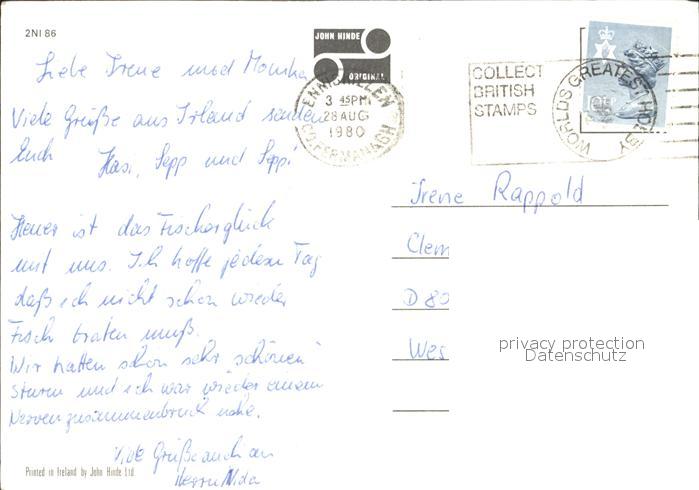 2NI 86
JOHN HINDE
ORIGINAL
ENNISKILLEN
3 45PM
28 AUG
1980
CO. FERMANAGH
COLLECT
BRITISH
STAMPS
WORLDS GREATEST HOBBY
Liebe Irene und Monika
Viele Grüße aus Irland senden
Euch Hasi, Sepp und Seppi
Heuer ist das Fischerglück
mit uns. Ich hoffe jeden Tag
daß ich nicht schon wieder
Fisch braten muß.
Wir hatten schon sehr schönen
Sturm und ich war wieder einem
Nervenzusammenbruch nahe.
Viele Grüße auch an
Herrn
Irene Rappold
Clem
D 80
Wes
privacy protection
Datenschutz
Printed in Ireland by John Hinde Ltd.